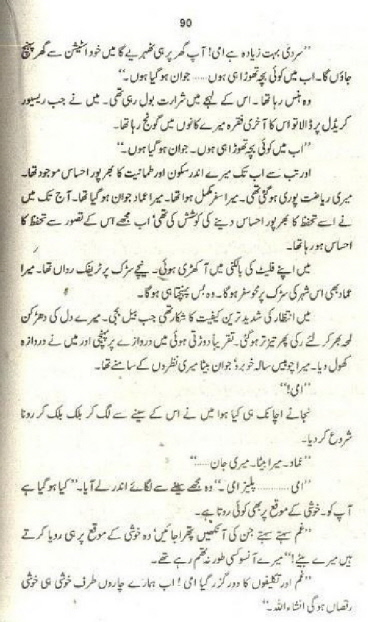 90
”سردی بہت زیادہ ہے امی! آپ گھر پر ہی ٹھہریے گا میں خود اسٹیشن سے گھر پہنچ
جاؤں گا۔ اب میں کوئی بچہ تھوڑا ہی ہوں ...... جوان ہو گیا ہوں۔“
وہ ہنس رہا تھا۔ اس کے لہجے میں شرارت بول رہی تھی۔ میں نے جب ریسیور
کریڈل پر ڈالا تو اس کا آخری فقرہ میرے کانوں میں گونج رہا تھا۔
”اب میں کوئی بچہ تھوڑا ہی ہوں۔ جوان ہو گیا ہوں۔“
اور تب سے اب تک میرے اندر سکون اور طمانیت کا بھرپور احساس موجود تھا۔
میری ریاضت پوری ہو گئی تھی۔ میرا سفر مکمل ہوا تھا۔ میرا عماد جوان ہو گیا تھا۔ آج تک میں
نے اسے تحفظ کا بھرپور احساس دینے کی کوشش کی تھی‘ اب مجھے اس کے تصور سے تحفظ کا
احساس ہو رہا تھا۔
میں اپنے فلیٹ کی بالکنی میں آ کھڑی ہوئی۔ نیچے سڑک پر ٹریفک رواں تھا۔ میرا
عماد بھی اس شہر کی سڑک پر محو سفر ہو گا۔ وہ بس پہنچتا ہی ہو گا۔
میں انتظار کی شدید ترین کیفیت کا شکار تھی جب بیل بجی۔ میرے دل کی دھڑکن
لمحہ بھر کر لئے رکی پھر تیز تر ہو گئی۔ تقریباً دوڑتی ہوئی میں دروازے پر پہنچی اور میں نے دروازہ
کھول دیا۔ میرا چوبیس سالہ خوبرو‘ جوان بیٹا میری نظروں کے سامنے تھا۔
”امی!“
نجانے اچانک ہی کیا ہوا میں نے اس کے سینے سے لگ کر بلک بلک کر رونا
شروع کر دیا۔
”عماد۔ میرا بیٹا۔ میری جان ......“
”امی ............ پلیز امی۔“ وہ مجھے سینے سے لگائے اندر لے آیا۔ ”کیا ہو گیا ہے
آپ کو۔ خوشی کے موقع پر بھی کوئی روتا ہے۔
”غم سہتے سہتے جن کی آنکھیں پتھرا جائیں‘ وہ خوشی کے موقع پر ہی رویا کرتے
ہیں میرے بیٹے!“ میرے آنسو کسی طور نہ تھم رہے تھے۔
”غم اور تکلیفوں کا دور گزر گیا امی! اب ہمارے چاروں طرف خوشی ہی خوشی
رقصاں ہو گی انشاء اللہ۔“